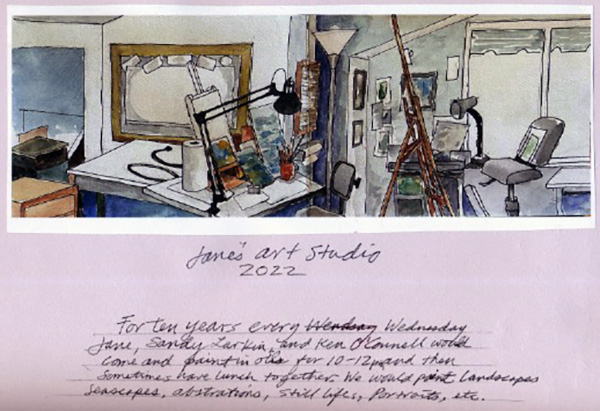 Jane's art studio
2022
For ten years every Wendsay Wednesday
Jane, Sandy Larkin, and Ken O'Connell would
come and paint in oils for 10-12pm and then
Sometimes have lunch together. We would paint Landscapes
Seascapes, abstrations, still lifes, Portraits, etc.